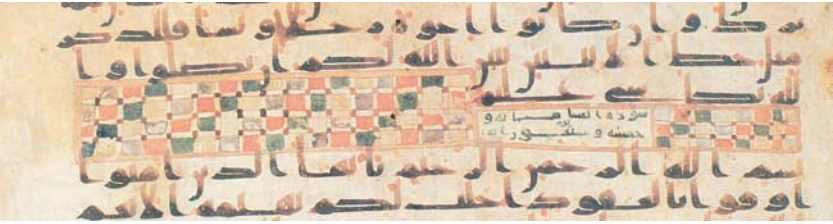 ترك وان كانوا اخوة رجلا ونسا فللذكر
مثل حظ الانثيين يبين الله لكم ان تضلوا وا
لله بكل شي عليم
سورة النسا مايه و
خمسه و
بسم الله الرحمن الرحيم يايها الذين امنوا
اوفوا بالعقود احلت لكم بهيمة الانعم